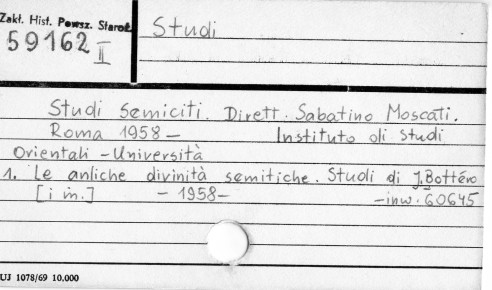 Zakł. Hist. Powsz. Staroż.
59162 II
Studi
Studi Semiciti. Dirett. Sabatino Moscati.
Roma 1958— Instituto oli studi
Orientali - Università
1. Le anliche divinità semitiche. Studi di J. Bottéro
[i in.] - 1958— -inw. 60645
UJ 1078/69 10.000